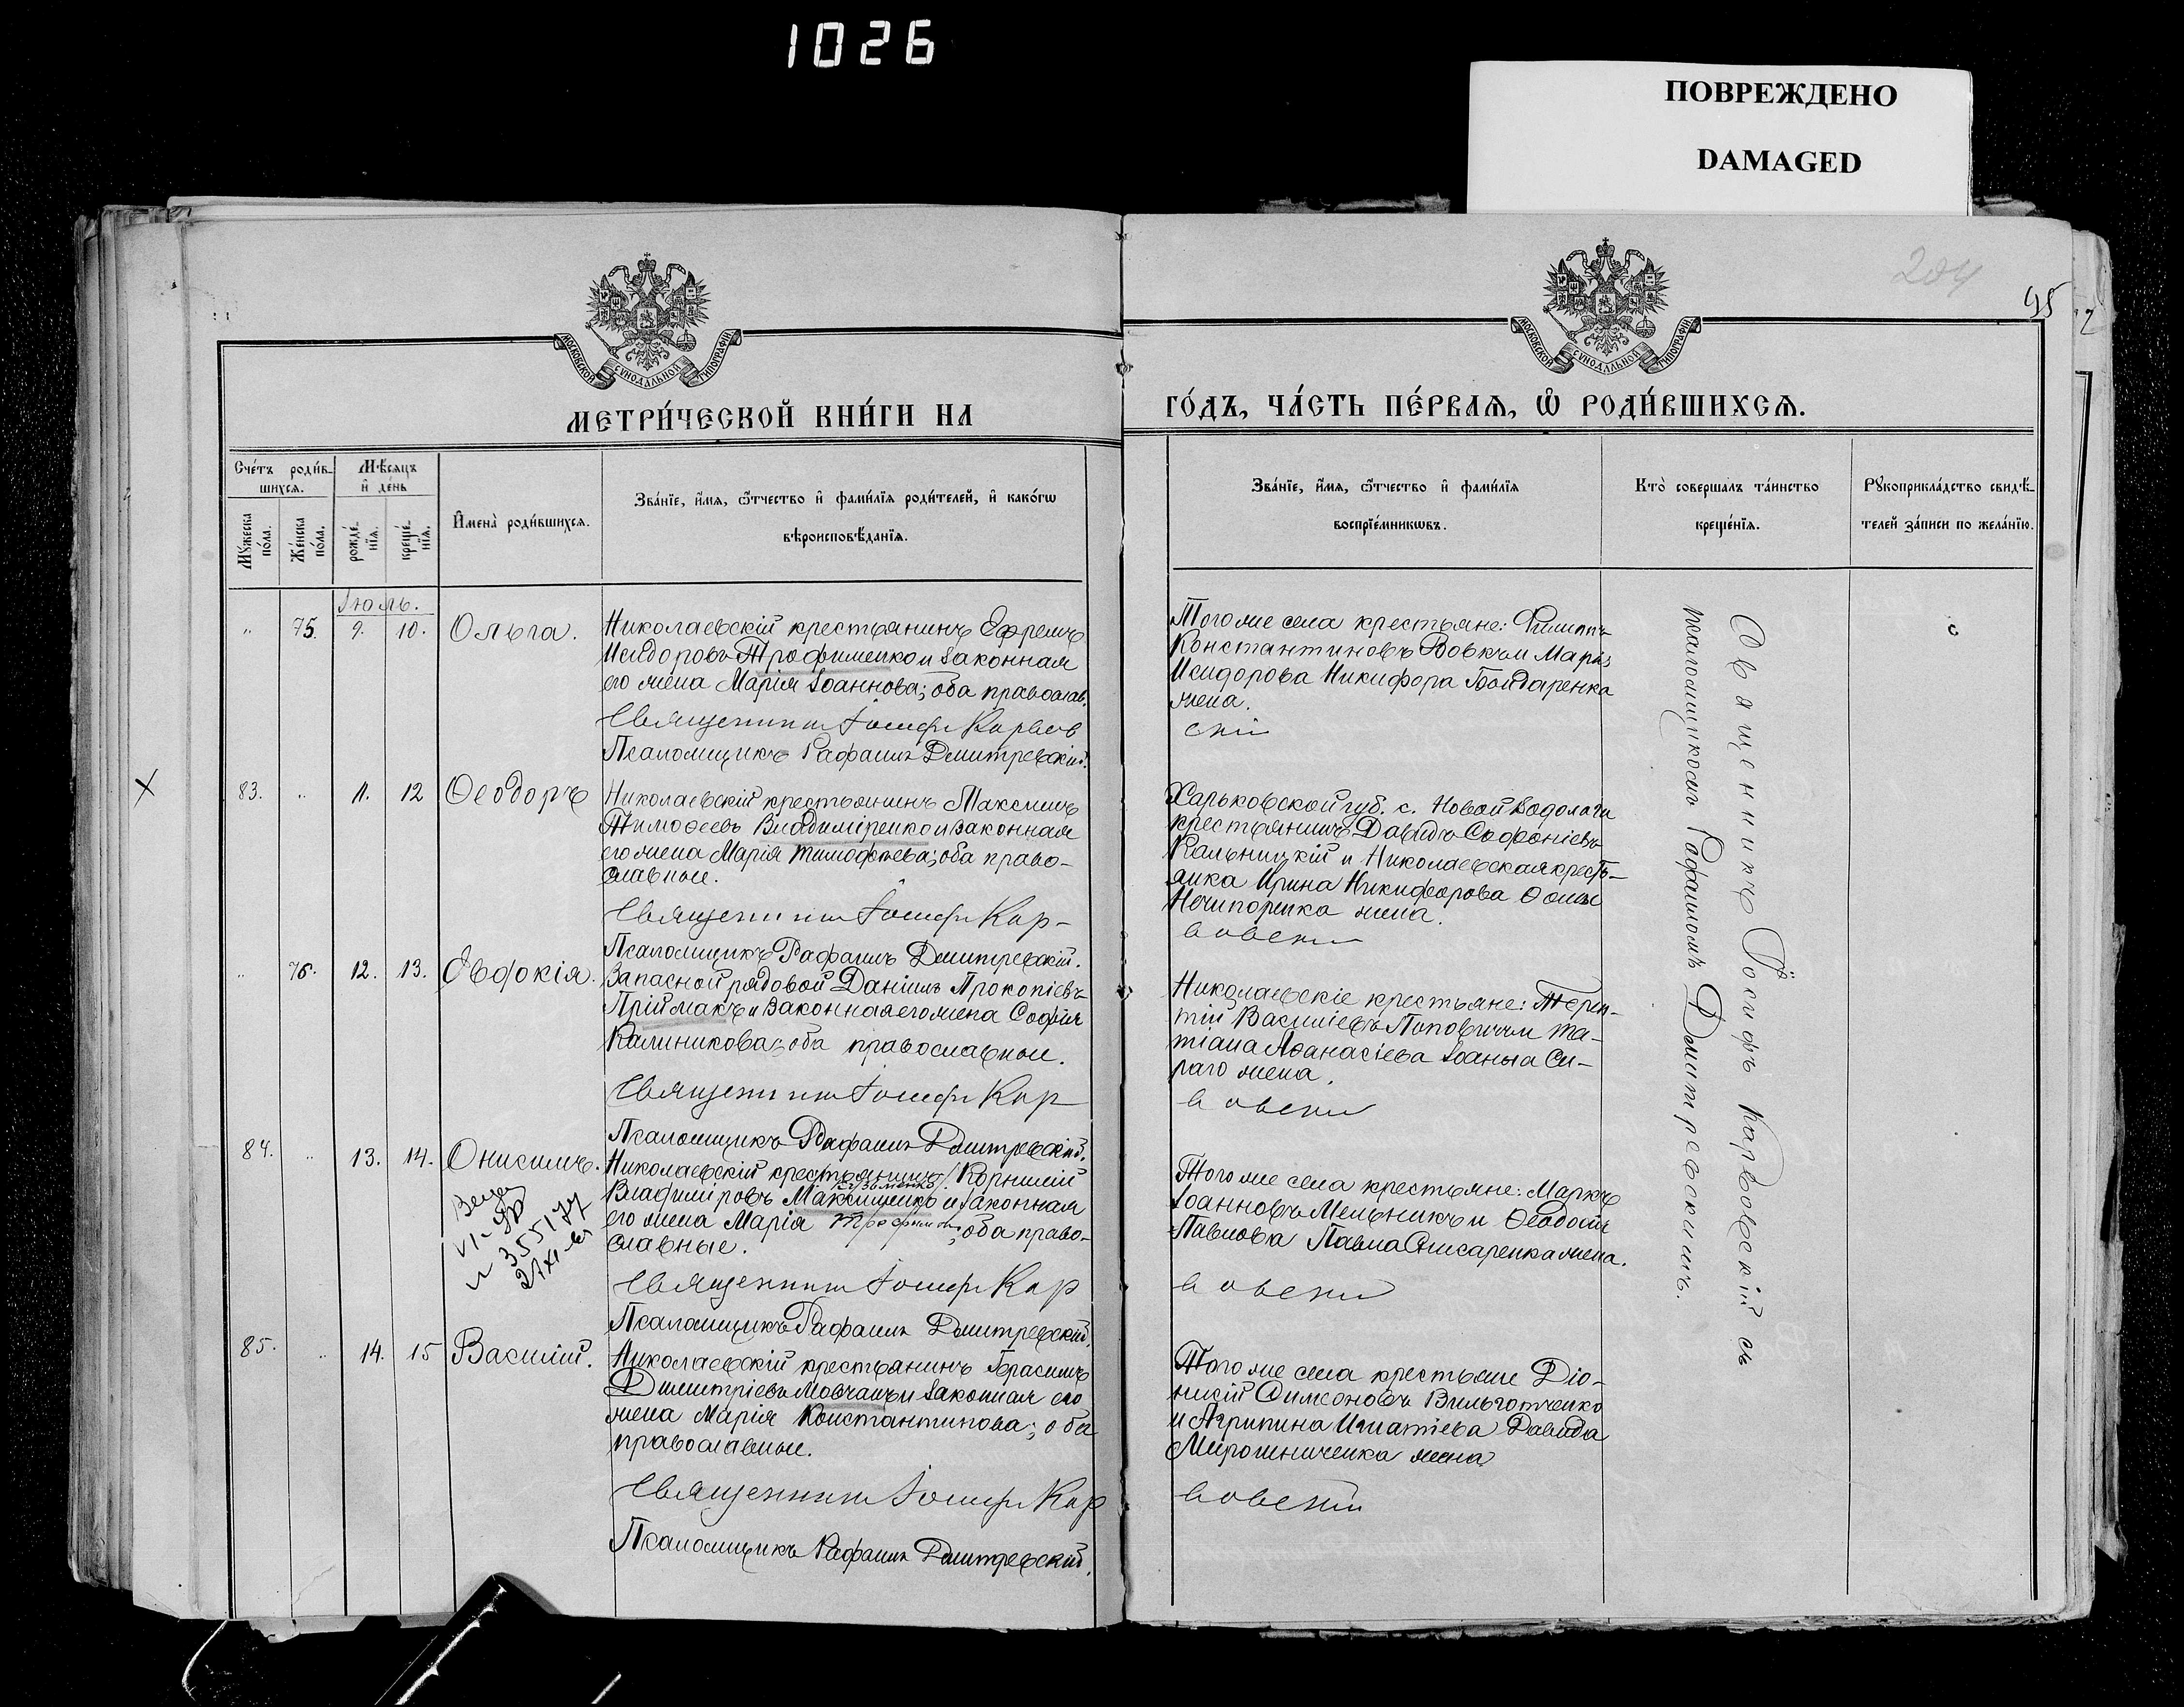 1026
ПОВРЕЖДЕНО
DAMAGED
204
95
МОСКОВСКОЙ СѴНОДАЛЬНОЙ ТИПОГРАФІИ
МОСКОВСКОЙ СѴНОДАЛЬНОЙ ТИПОГРАФІИ
МЕТРИ́ЧЕСКОЙ КНИ́ГИ НА
ГО́ДЪ, ЧА́СТЬ ПЕ́РВАѦ, Ѽ РОДИ́ВШИХСѦ.
Сче́тъ роди́в-
шихсѧ.
Мꙋ́жеска по́ла.
Же́нска по́ла.
Мѣ́сѧцъ
и҆ де́нь
рожде́-
нїѧ.
креще́-
нїѧ.
И҆мена̀ роди́вшихсѧ.
Зва́нїе, и҆́мѧ, ѻ҆́тчество и҆ фами́лїѧ роди́телей, и҆ како́гѡ
вѣроисповѣ́данїѧ.
Зва́нїе, и҆́мѧ, ѻ҆́тчество и҆ фами́лїѧ
воспрїе́мникѡвъ.
Кто̀ соверша́лъ та́инство
креще́нїѧ.
Рꙋкоприкла́дство свидѣ́-
телей за́писи по жела́нїю.
Іюль.
75. 9. 10. Ольга.
Николаевскій крестьянинъ Ефремъ
Исидоровъ Трофименко и законная
его жена Марія Іоаннова; оба православ.
Священникъ Іосифъ Карвов
Псаломщикъ Рафаилъ Дмитревскій.
Того же села крестьяне: Филиппъ
Константиновъ Вовкъ и Марія
Исидорова Никифора Бондаренка
жена.
скій
83. 11. 12 Ѳеодоръ
Николаевскій крестьянинъ Максимъ
Тимоѳеевъ Владиміренко и законная
его жена Марія Тимофѣева; оба право-
славные.
Священникъ Іосифъ Кар-
Псаломщикъ Рафаилъ Дмитревскій.
Харьковской губ. с. Новой Водолаги
крестьянинъ Давидъ Софоніевъ
Кальницкій и Николаевская кресть-
янка Ирина Никифорова Ѳомы
Нечипоренка жена.
вовскій
76. 12. 13. Евдокія.
Запасной рядовой Даніилъ Прокопіевъ
Пріймакъ и законная его жена Софія
Калиникова; оба православные.
Священникъ Іосифъ Кар
Псаломщикъ Рафаилъ Дмитревскій.
Николаевскіе крестьяне: Терен-
тій Василіевъ Поповичъ и Та-
тіана Аѳанасіева Іоанна Си-
раго жена.
вовскій
84. 13. 14. Онисимъ.
VI-ЯР
№ 355177
Николаевскій крестьянинъ Корнилій
Кузьменко
Владиміровъ Максименко и законная
его жена Марія Трофимова; оба право-
славные.
Священникъ Іосифъ Кар
Псаломщикъ Рафаилъ Дмитревскій.
Того же села крестьяне: Маркъ
Іоанновъ Мельникъ и Ѳеодосія
Павлова Павла Списаренка жена.
вовскій
85. 14. 15 Василій.
Николаевскій крестьянинъ Герасимъ
Димитріевъ Мовчанъ и законная его
жена Марія Константинова; оба
православные.
Священникъ Іосифъ Кар
Псаломщикъ Рафаилъ Дмитревскій.
Того же села крестьяне Діо-
нисій Симеоновъ
и Агрипина Игнатіева Давида
Мирошниченка жена
вовскій
Священникъ Іосифъ Карвовскій съ
псаломщикомъ Рафаиломъ Дмитревскимъ.